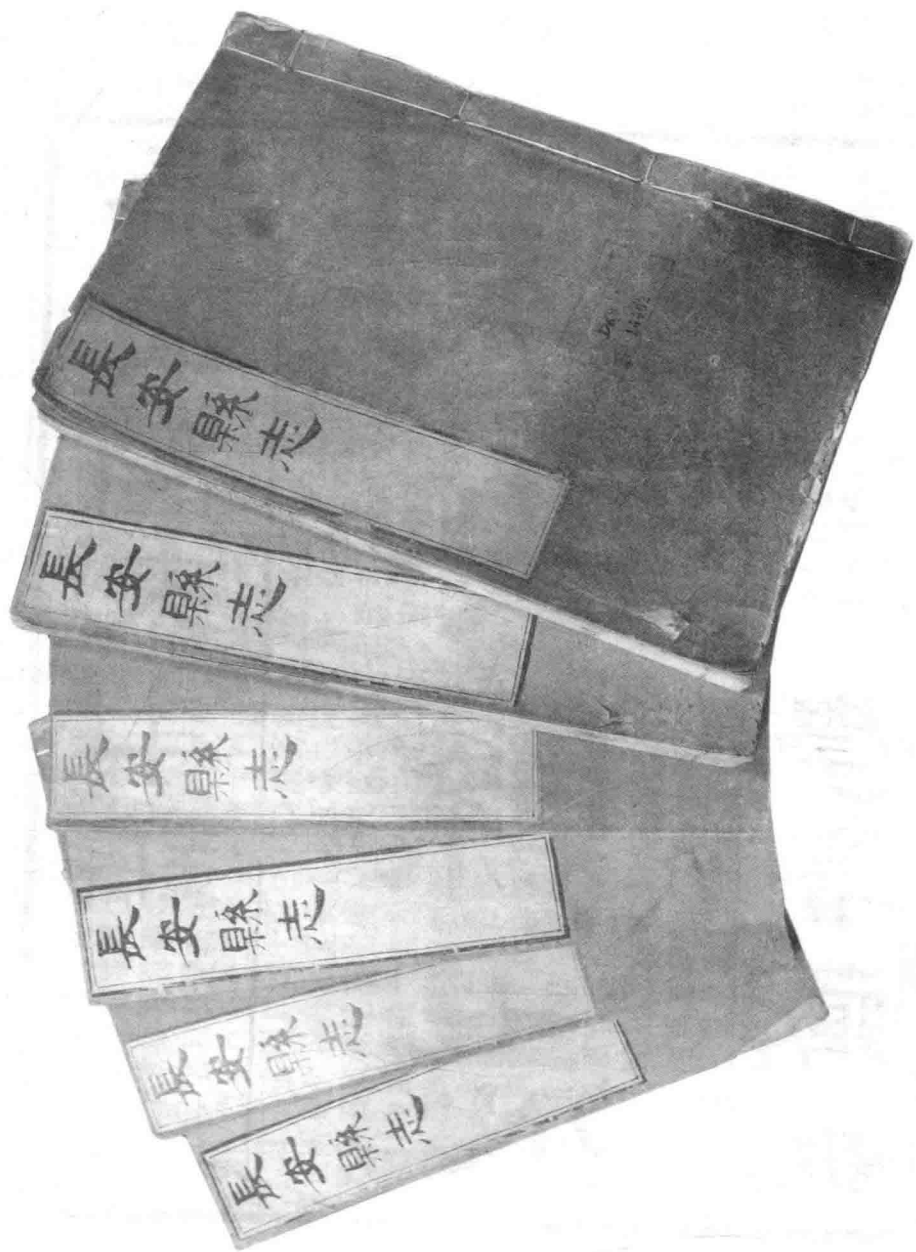 長安縣志
長安縣志
長安縣志
長安縣志
長安縣志
長安縣志